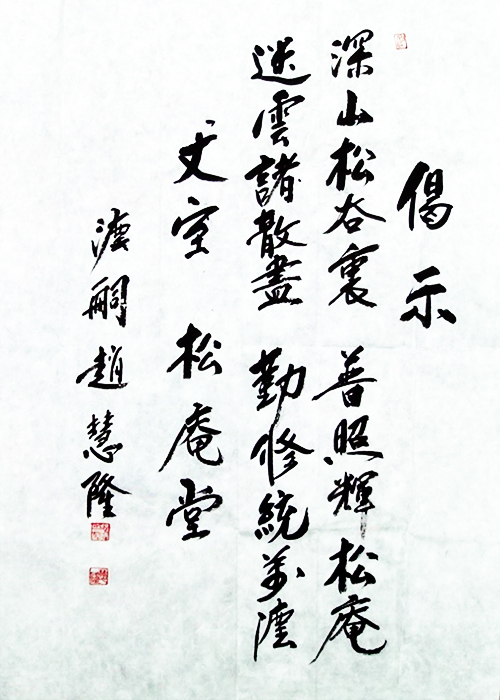 偈示
深山松谷裏 普照輝松庵
迷雲諸散盡 勤修統萬法
丈室 松庵堂
法嗣趙慧隆